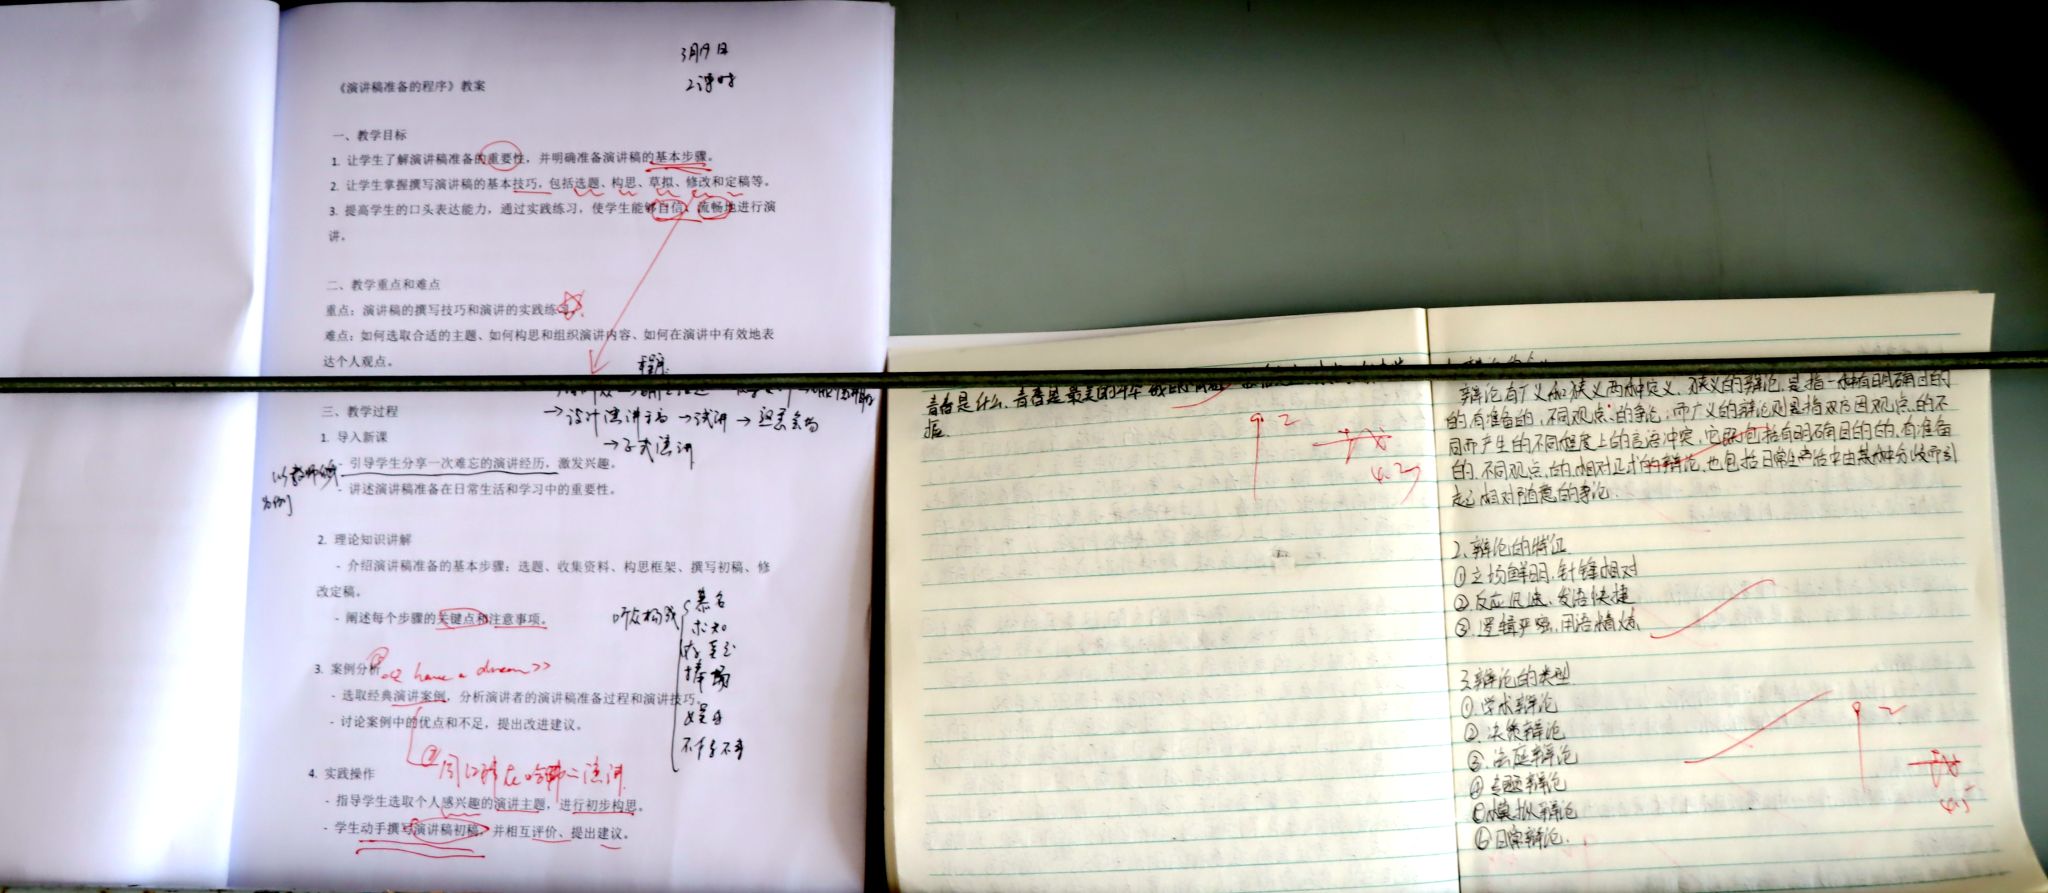 3月19日
2课时
《演讲稿准备的程序》教案
一、教学目标
1. 让学生了解演讲稿准备的重要性，并明确准备演讲稿的基本步骤。
2. 让学生掌握撰写演讲稿的基本技巧，包括选题、构思、草拟、修改和定稿等。
3. 提高学生的口头表达能力，通过实践练习，使学生能够自信、流畅地进行演
讲。
二、教学重点和难点
重点：演讲稿的撰写技巧和演讲的实践练习。
难点：如何选取合适的主题、如何构思和组织演讲内容、如何在演讲中有效地表
达个人观点。
程序
三、教学过程
→试讲→
→正式演讲
1. 导入新课
- 引导学生分享一次难忘的演讲经历，激发兴趣。
- 讲述演讲稿准备在日常生活和学习中的重要性。
为例
2. 理论知识讲解
- 介绍演讲稿准备的基本步骤：选题、收集资料、构思框架、撰写初稿、修
改定稿。
- 阐述每个步骤的关键点和注意事项。
听众构成
慕名
求知
捧场
娱乐
不得不来
3. 案例分析
① have a dream>>
- 选取经典演讲案例，分析演讲者的演讲稿准备过程和演讲技巧。
- 讨论案例中的优点和不足，提出改进建议。
②
4. 实践操作
- 指导学生选取个人感兴趣的演讲主题，进行初步构思。
- 学生动手撰写演讲稿初稿，并相互评价、提出建议。
青春是什么，青春是最美的年华
辩论有广义和狭义两种定义，狭义的辩论，是指一种有明确目的
的，有准备的，不同观点的争论；而广义的辩论则是指双方因观点的不
同而产生的不同程度上的言语冲突，它既包括有明确目的的，有准备
的，不同观点的，相对正式的辩论，也包括日常生活中由某种分歧而引
起，相对随意的争论．
2、辩论的特征
①立场鲜明，针锋相对
②反应迅速，发语快捷
③逻辑严密，用语精炼
3、辩论的类型
①学术辩论
②决策辩论
③法庭辩论
④专题辩论
⑤模拟辩论
⑥日常辩论．